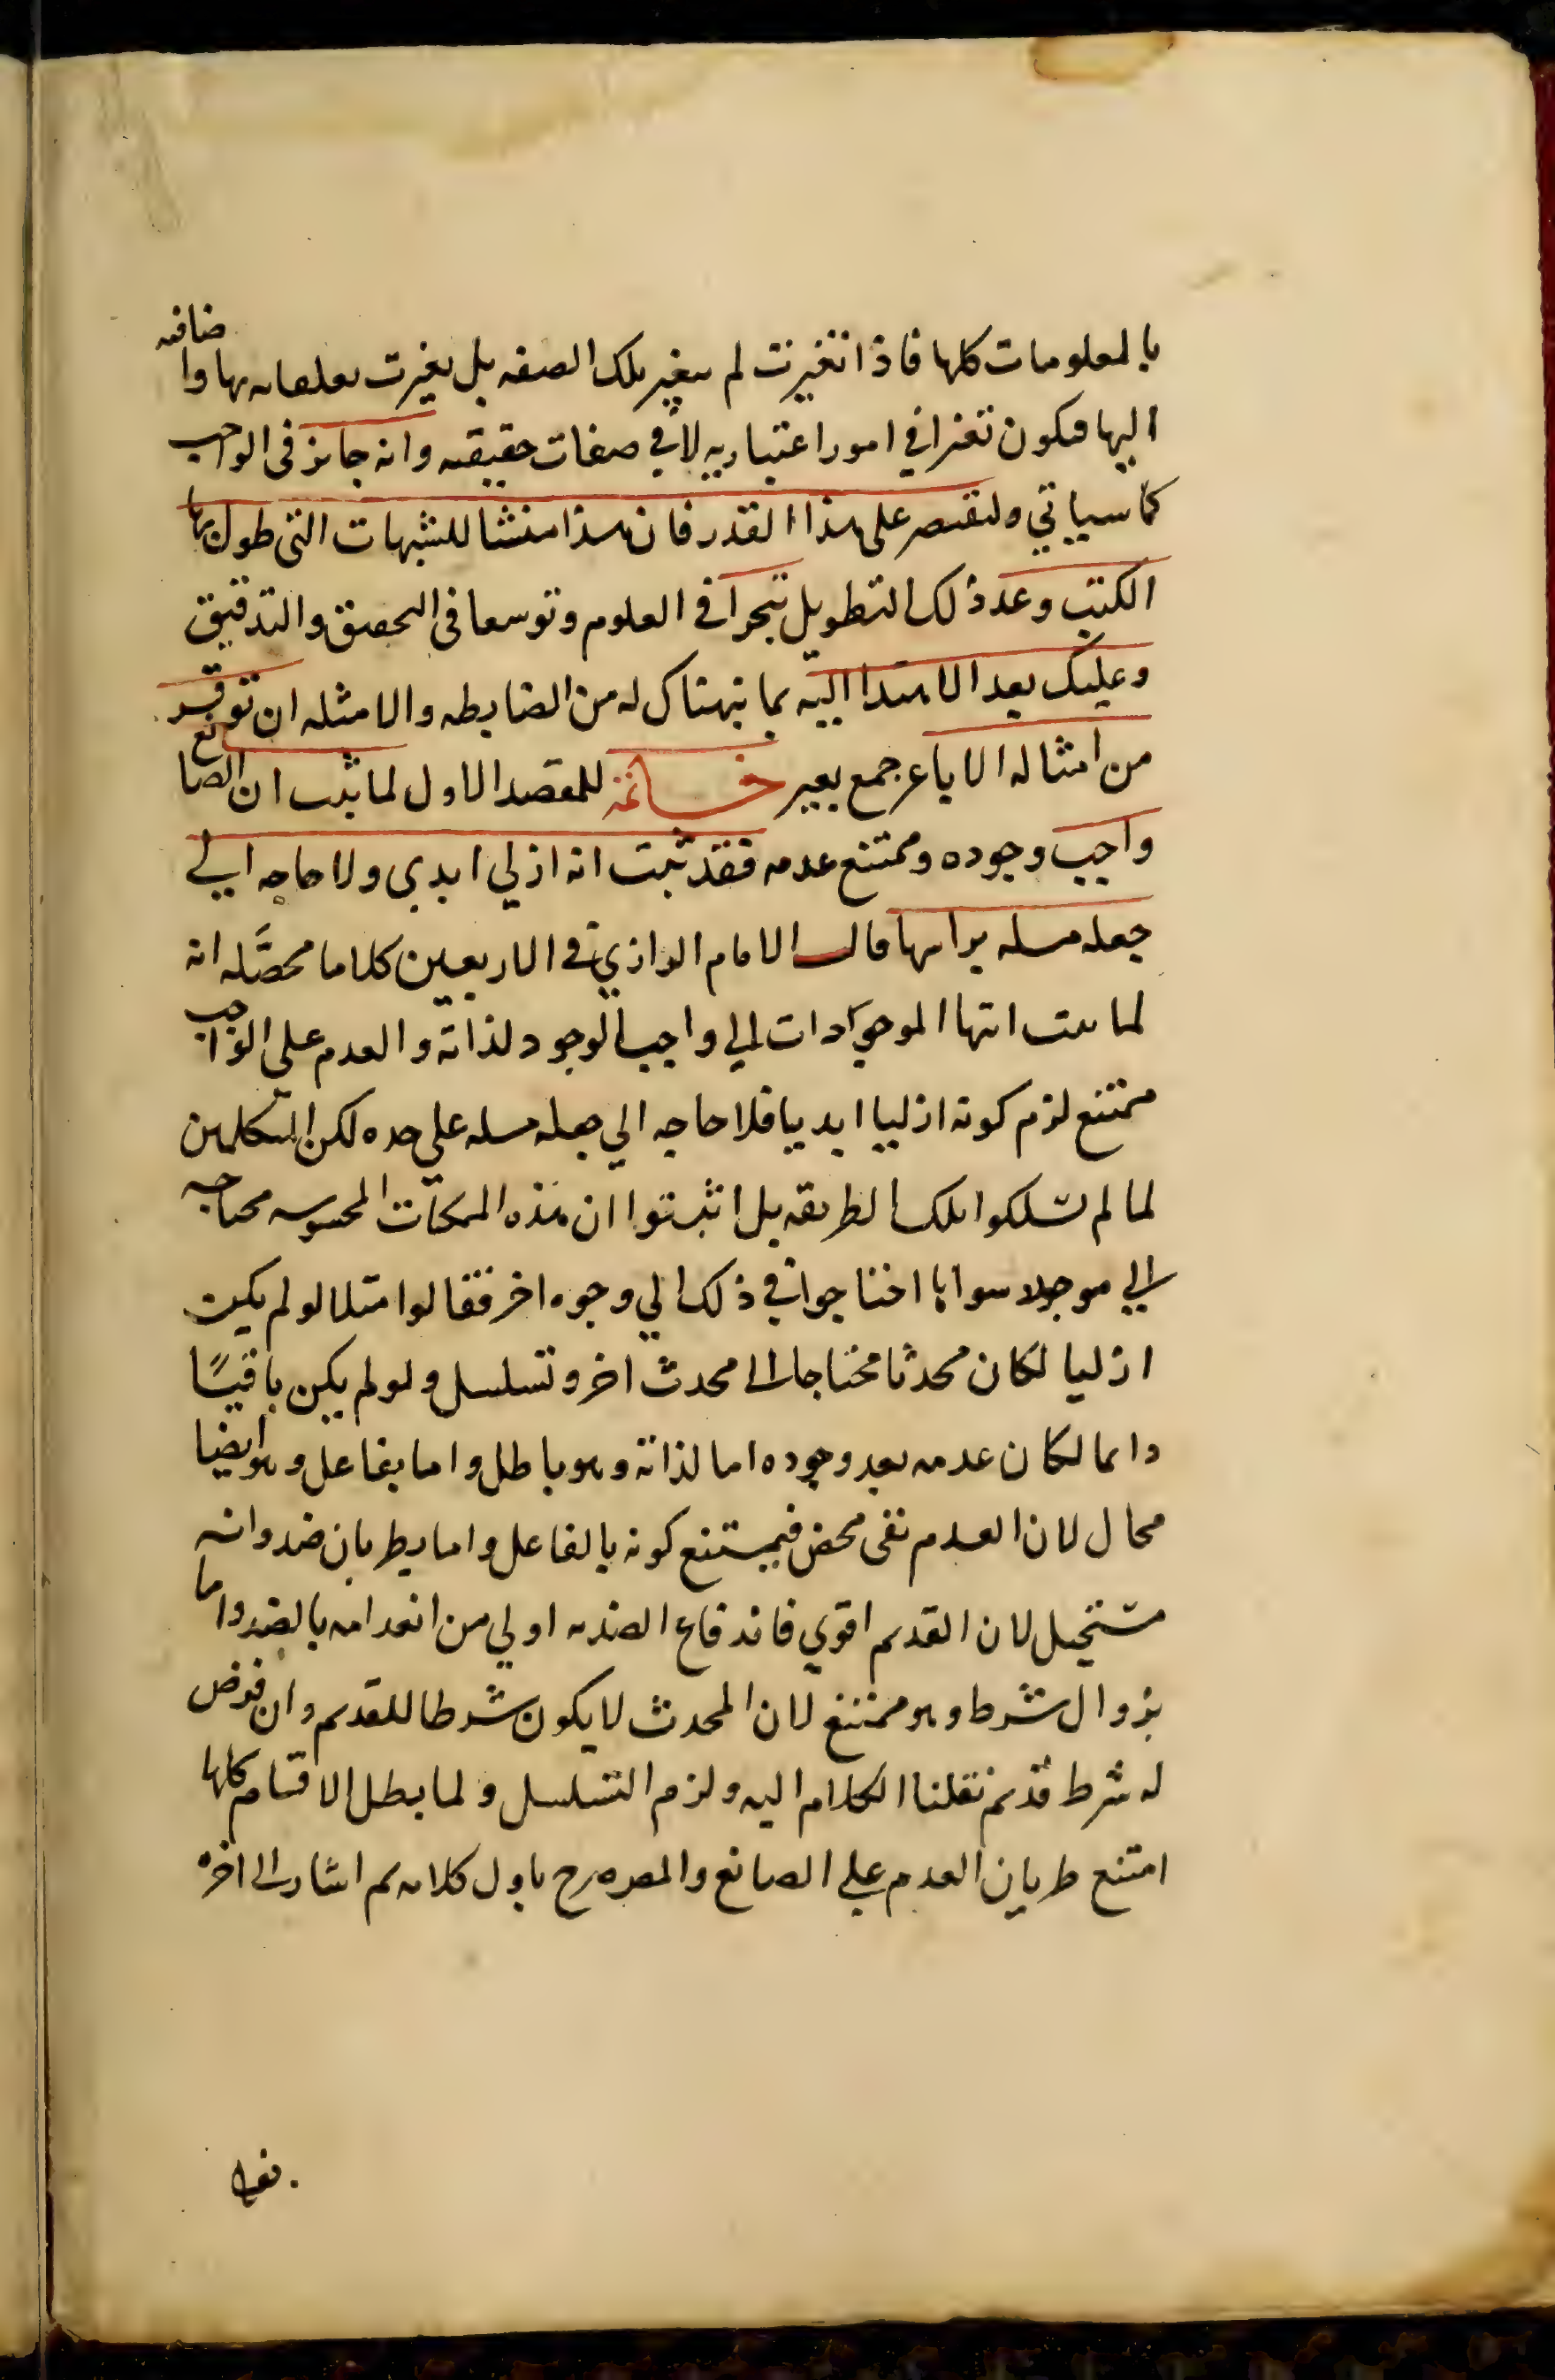 بالمعلومات كلها فاذا تغيرت لم يتغير تلك الصفه بل تغيرت تعلقاته بها واضافته
اليها فيكون تغيرا في امور اعتباريه لا في صفات حقيقيه وانه جايز في الواجب
كما سياتي ولنقتصر على هذا القدر فان هذا منشا للشبهات التي طول بها
الكتب وعد ذلك التطويل تبحرا في العلوم وتوسعا في التحقيق والتدقيق
وعليك بعد الاهتدا اليه بما نبهناك له من الضابطه والامثله ان توقر
من امثاله الاباعر جمع بعير خاتمة للمقصد الاول لما ثبت ان الصانع
واجب وجوده وممتنع عدمه فقد ثبت انه ازلي ابدي ولا حاجه الي
جعله مسله براسها قال الامام الرازي في الاربعين كلاما محصَّله انه
لما ثبت انتها الموجودات الي واجب الوجود لذاته والعدم علي الواجب
ممتنع لزم كونه ازليا ابديا فلا حاجه الي جعله مسله علي حده لكن المتكلمين
لما لم يسلكوا تلك الطريقه بل اثبتوا ان هذه الممكنات المحسوسه محتاجه
الي موجد سواها احتاجوا في ذلك الي وجوه اخر فقالوا مثلا لو لم يكن
ازليا لكان محدثا محتاجا الي محدث اخر وتسلسل ولو لم يكن باقيًا
دايما لكان عدمه بعد وجوده اما لذاته وهو باطل واما بفاعل وهو ايضا
محال لان العدم نفي محض فيمتنع كونه بالفاعل واما بطريان ضد وانه
مستحيل لان القديم اقوي فاندفاع الضد به اولي من انعدامه بالضد واما
بزوال شرط وهو ممتنع لان المحدث لا يكون شرطا للقديم وان فرض
له شرط قديم نقلنا الكلام اليه ولزم التسلسل ولما بطل الاقسام كلها
امتنع طريان العدم علي الصانع والمص صرح باول كلامه ثم اشار الي اخره